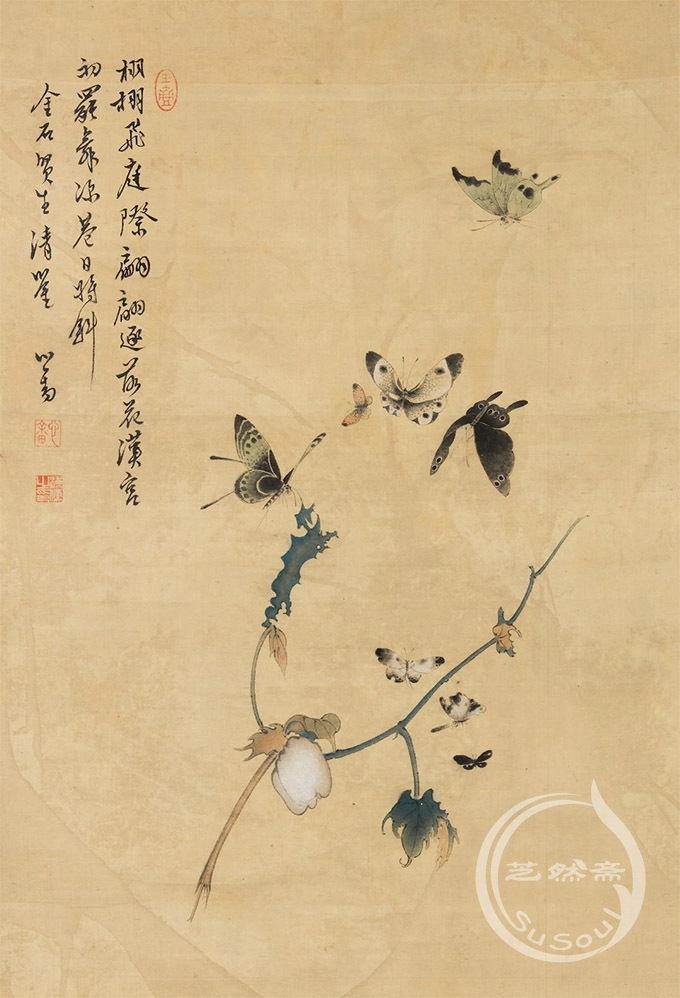 栩栩飛庭際翩翩逐落花漢宮
初罷舞深巷日將斜
金石賢生清鑒 心畬
芝然斋
SuSoul